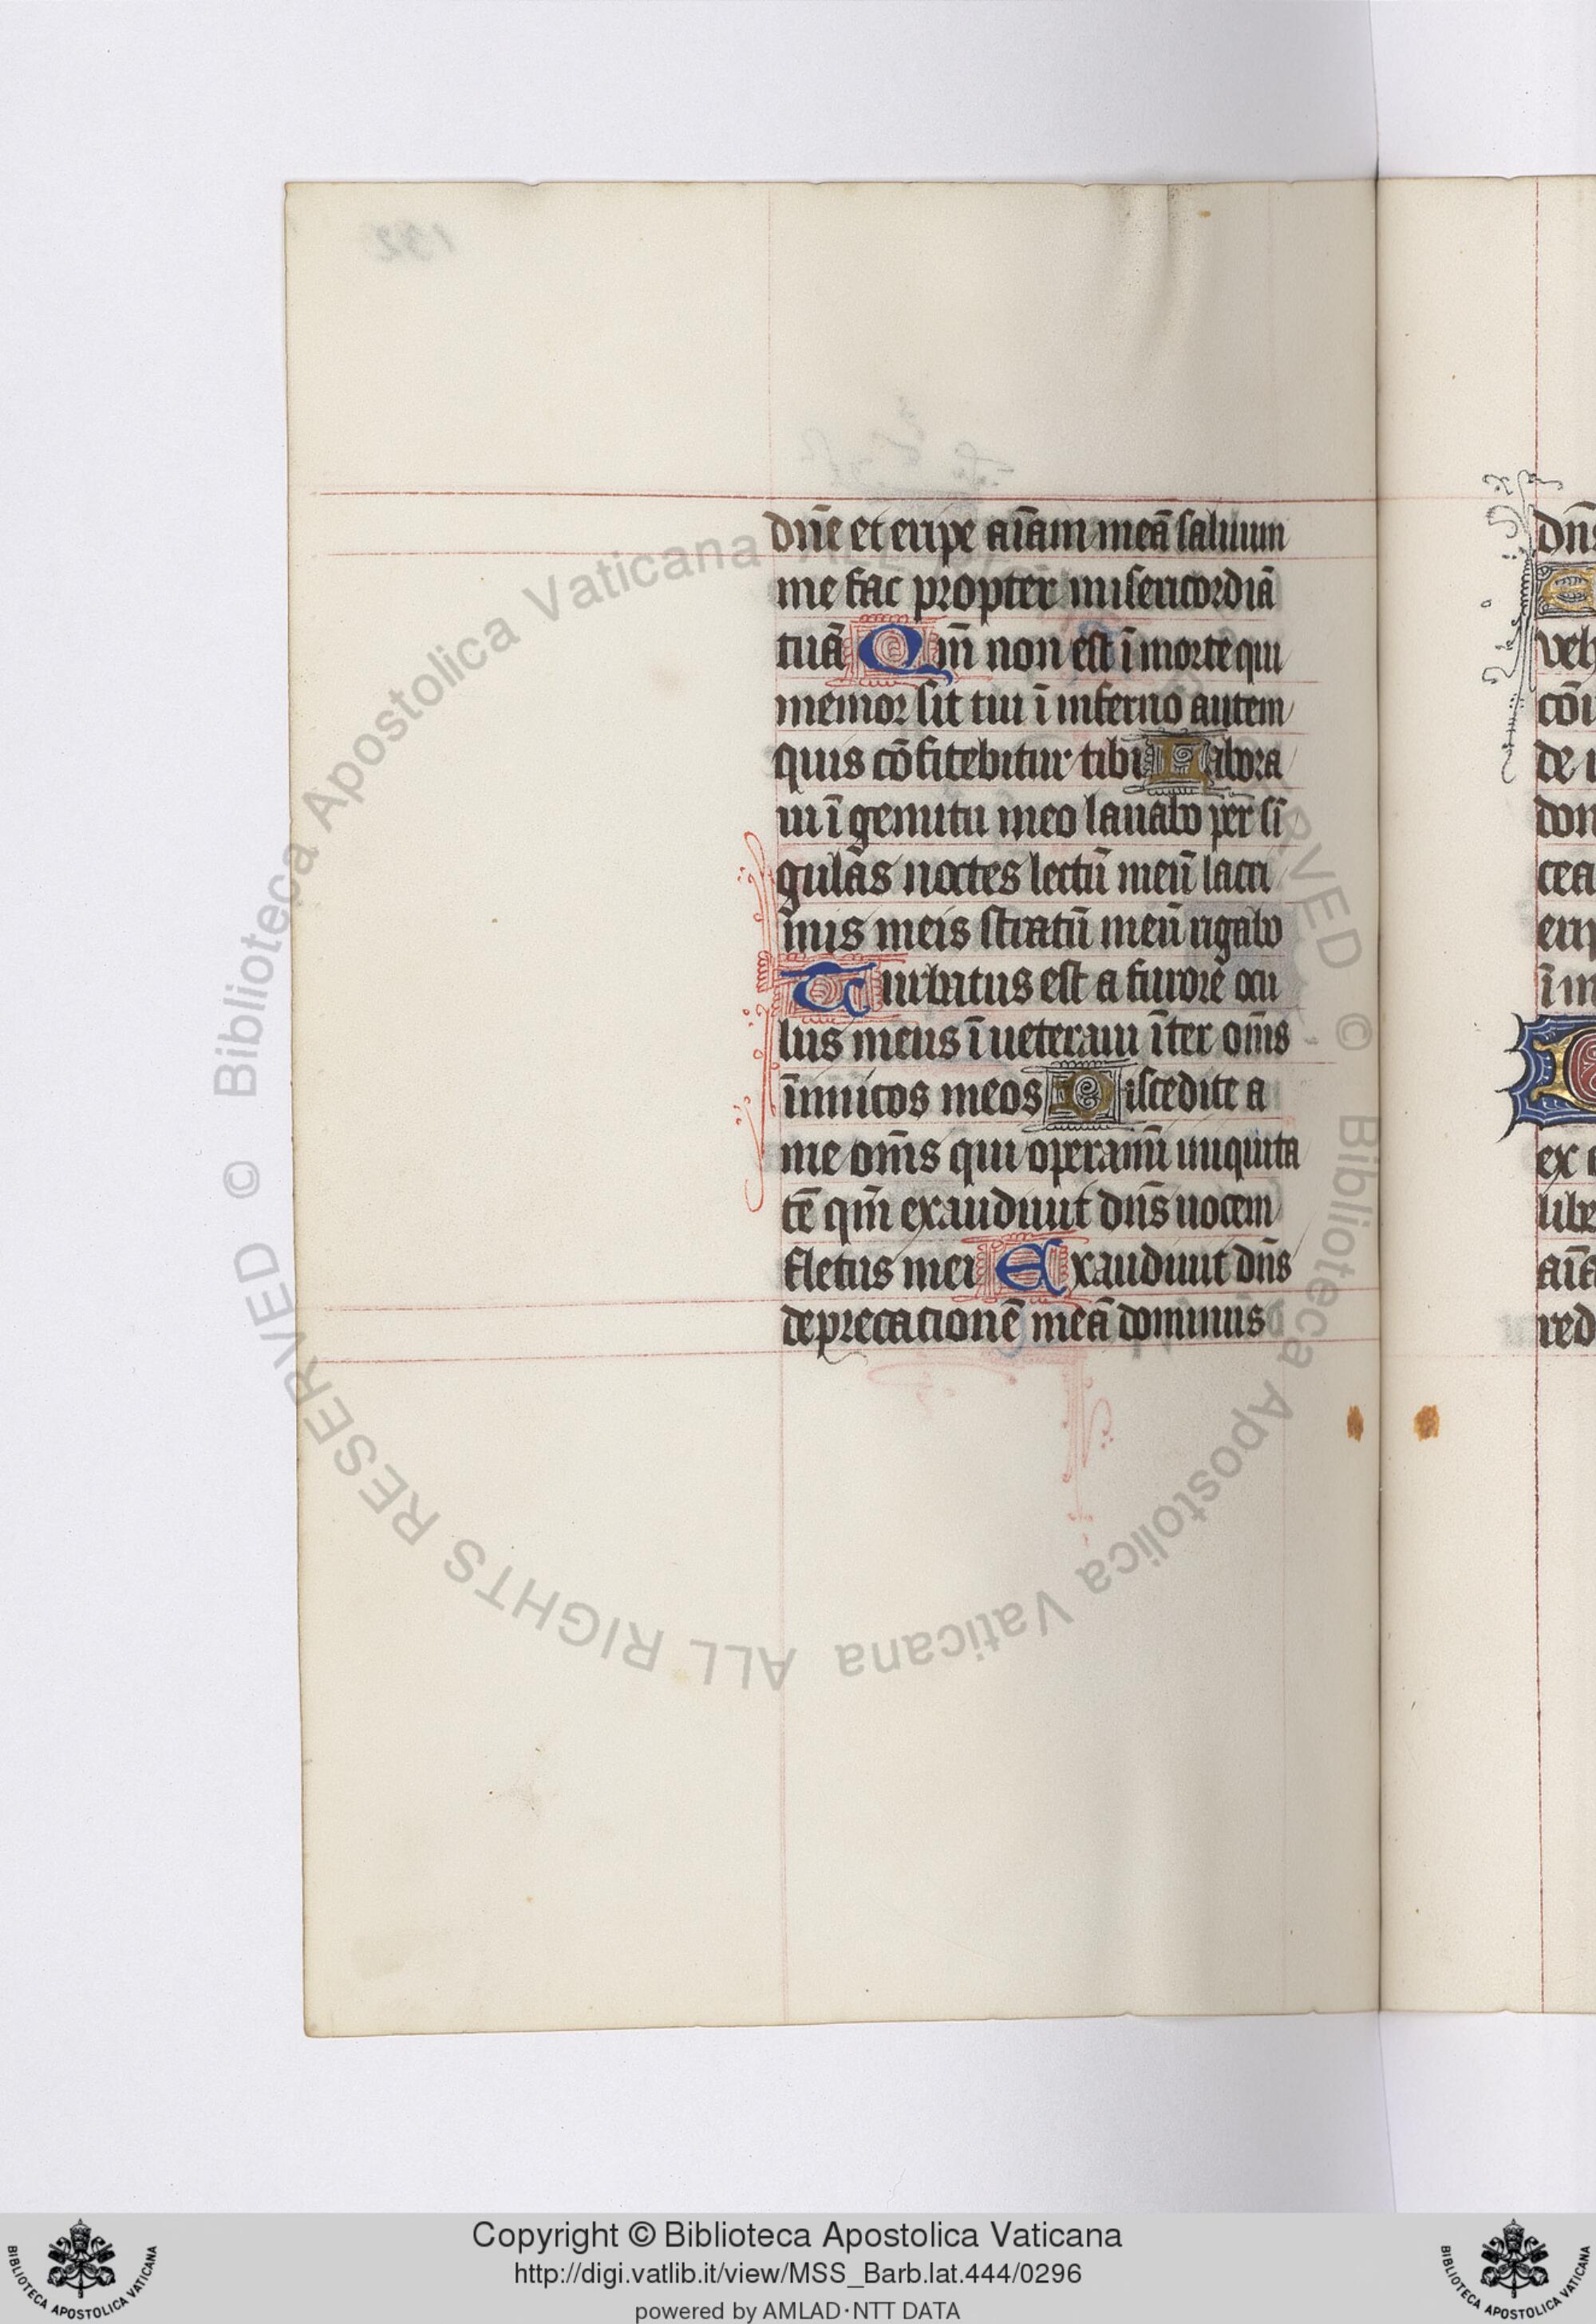 dn̄e et eripe aīam meā saluum
me fac propter misericordiā
tuā Qm̄ non est ī morte qui
memor sit tui ī inferno autem
quis cōfitebitur tibi Labora
ui ī gemitu meo lauabo per sī
gulas noctes lectū meū lacri
mis meis stratū meū rigabo
Turbatus est a furore ocu
lus meus īueteraui īter om̄s
īimicos meos Discedite a
me om̄s qui operamī iniquita
tē qm̄ exaudiuit dn̄s uocem
fletus mei Exaudiuit dn̄s
deprecacionē meā dominus
132
dn̄
veh
cōi
de i
don
cea
erip
ī m
ex
libe
aīa
red
© Biblioteca Apostolica Vaticana ALL RIGHTS RESERVED © Biblioteca Apostolica Vaticana ALL RIGHTS RESERVED
Copyright © Biblioteca Apostolica Vaticana
http://digi.vatlib.it/view/MSS_Barb.lat.444/0296
powered by AMLAD·NTT DATA
BIBLIOTECA APOSTOLICA VATICANA
BIBLIOTECA APOSTOLICA VATICANA